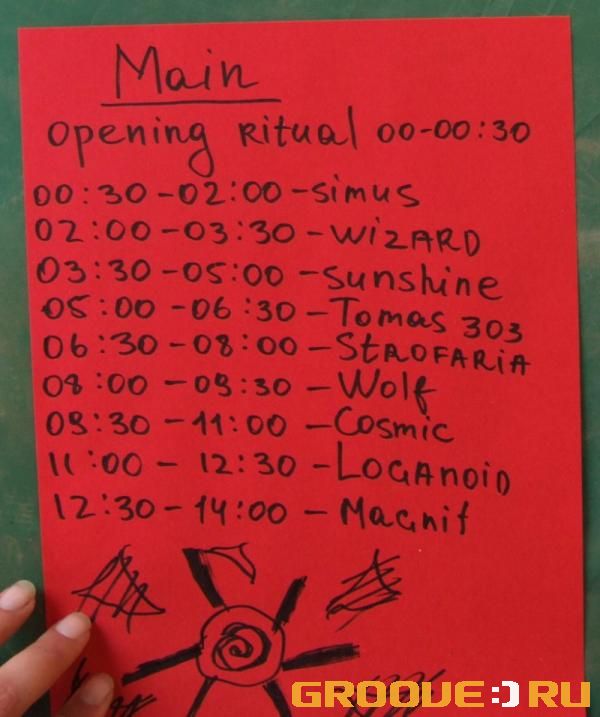 Main
Opening Ritual 00-00:30
00:30-02:00-Simus
02:00-03:30-WiZARD
03:30-05:00-Sunshine
05:00-06:30-Tomas 303
06:30-08:00-StROFARiA
08:00-09:30-Wolf
09:30-11:00-Cosmic
11:00-12:30-LOGANOiD
12:30-14:00-Magnit
GROOVE:)RU